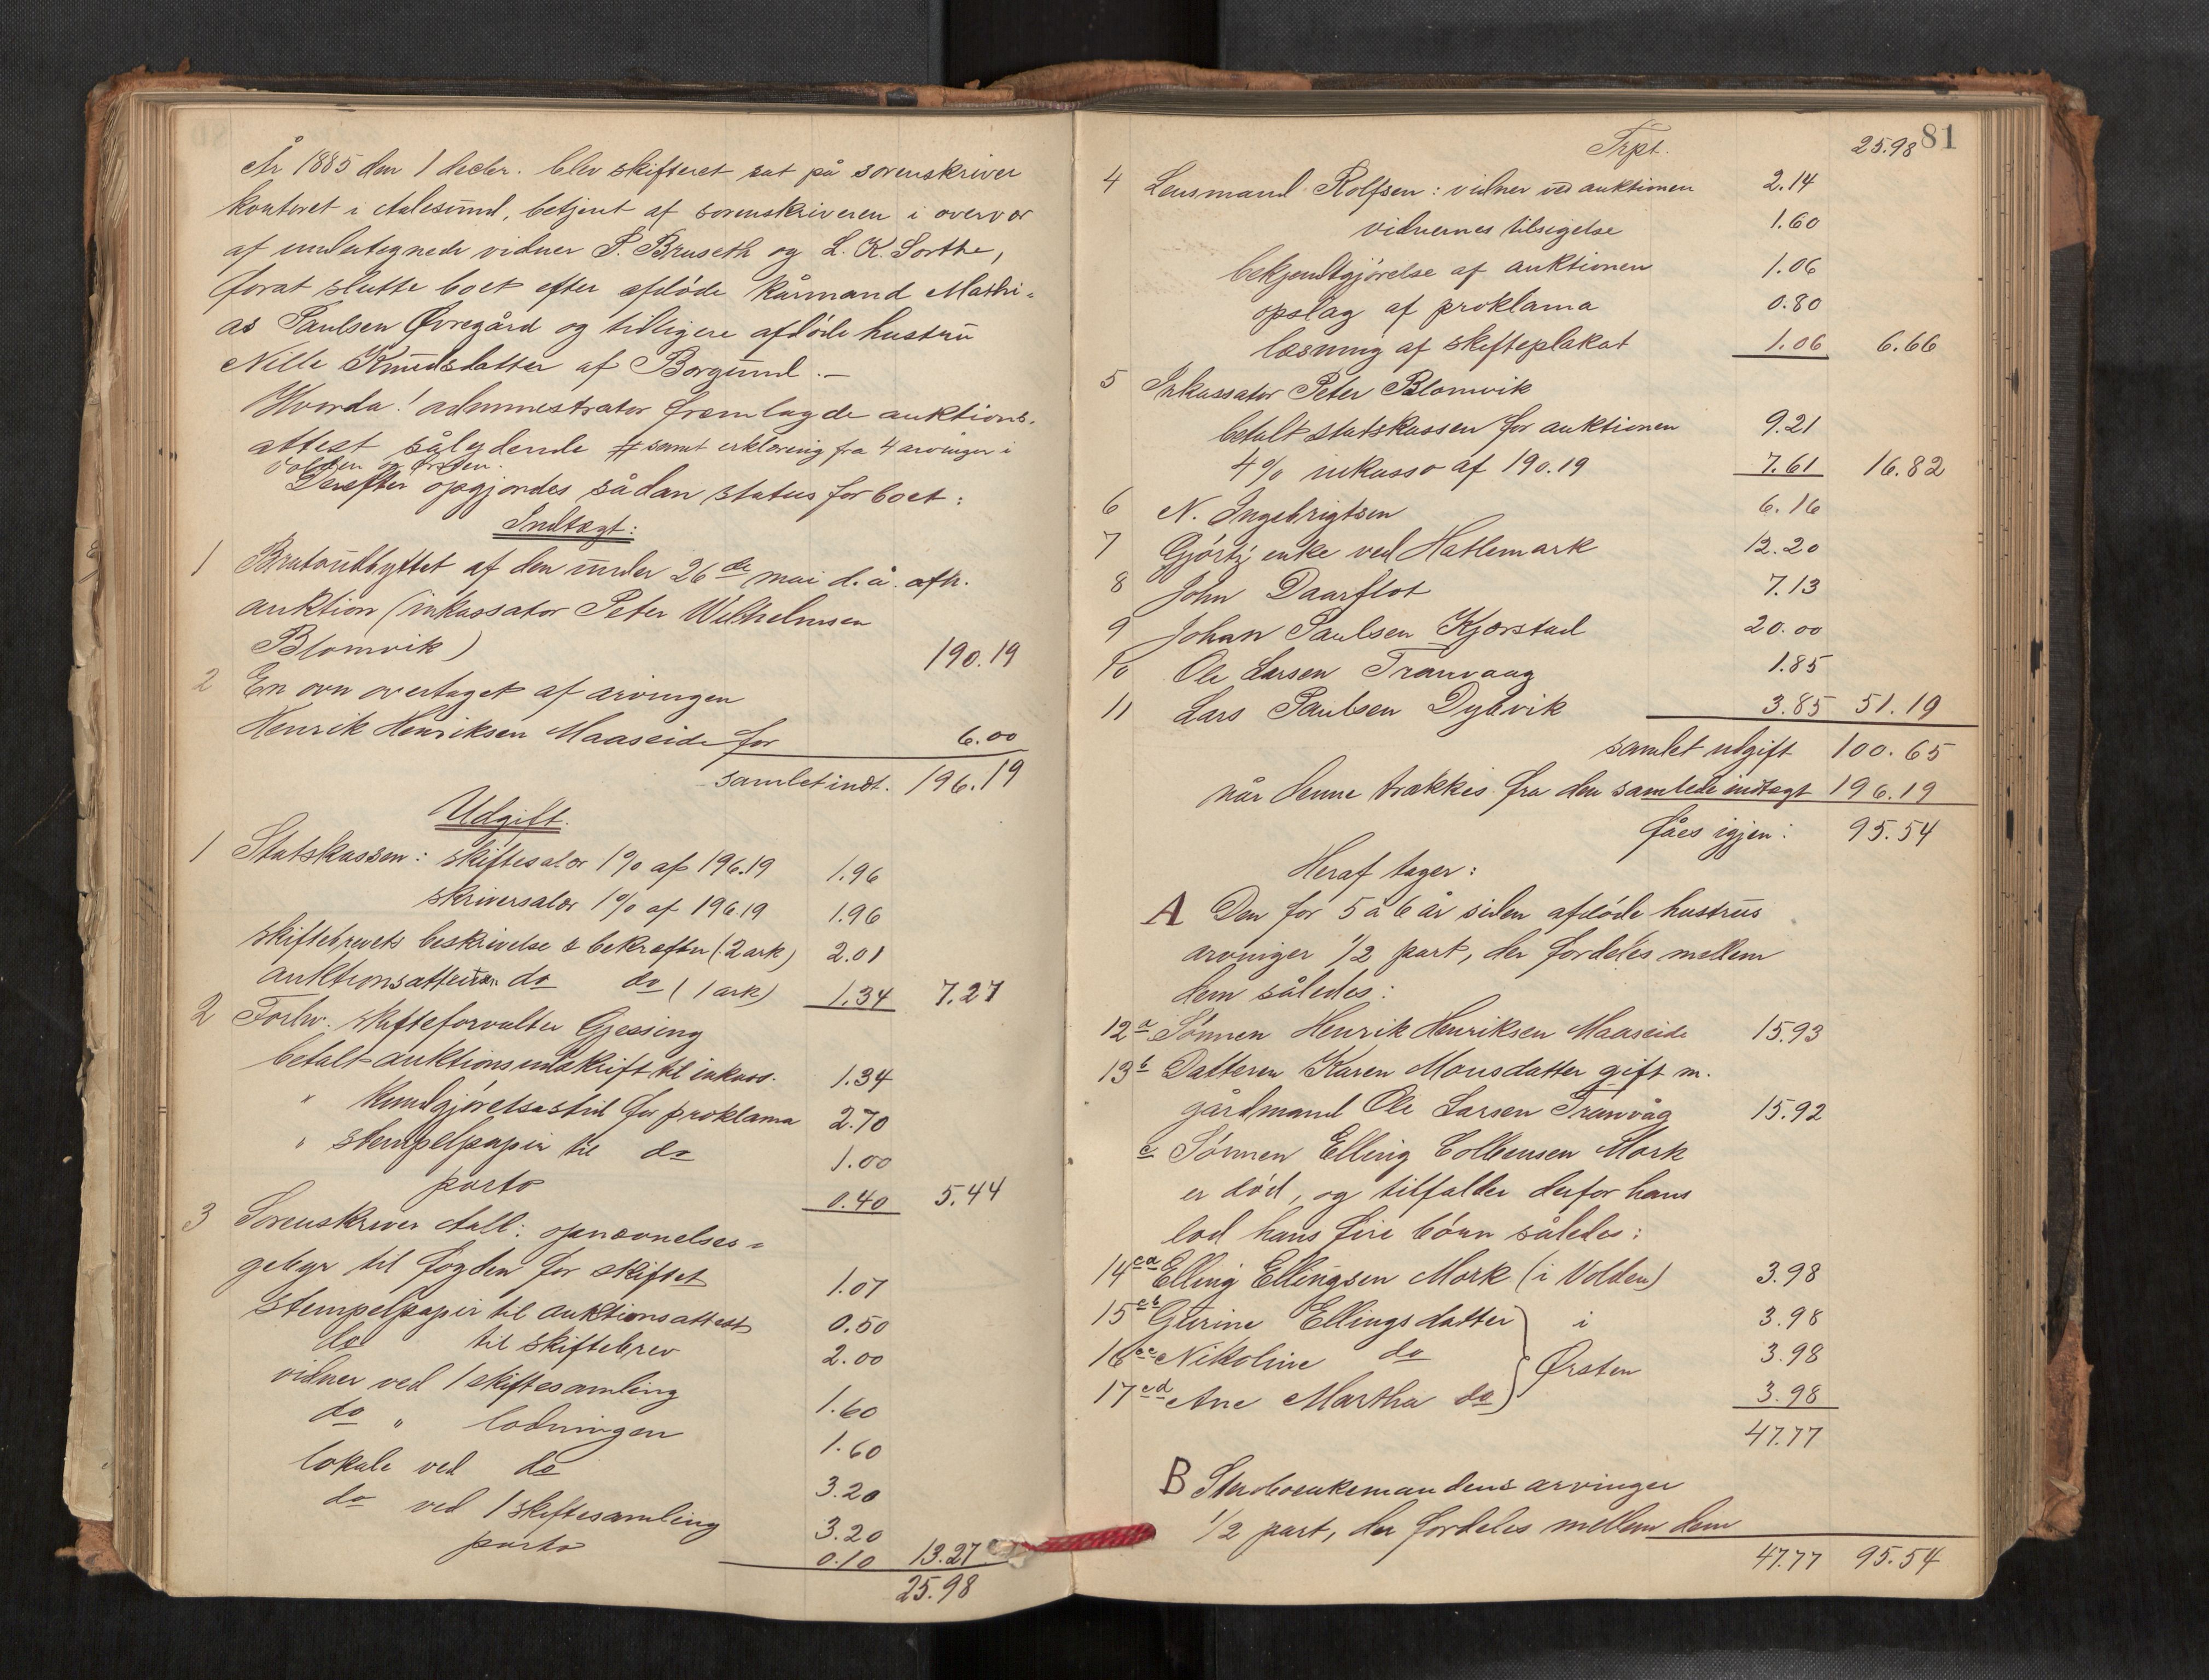 År 1885 den 1 decbr. blev skifteret sat på sorenskriver
kontoret i Aalesund, betjent af sorenskriveren i overvær
af undertegnede vidner P. Bruseth og L. K. Sorthe,
forat slutte boet efter afdöde kårmand Mathi=
as Paulsen Øvregård og tidligere afdöde hustru
Nille Knudsdatter af Borgund. —
Hvorda! administrator fremlagde auktions-
attest sålydende # samt erklæring fra 4 arvinger i
Volden og Ørsten.
Derefter opgjordes sådan status for boet:
Indtægt:
1 Brutoudbyttet af den under 26de mai d. å. afh.
auktion (inkassator Peter Wilhelmsen
Blomvik) 190.19
2 En ovn overtaget af arvingen
Henrik Henriksen Maaseide for 6.00
samlet indt. 196.19
Udgift.
1 Statskassen: skiftesalær 1% af 196.19 1.96
skriversalær 1% af 196.19 1.96
skiftebrevets beskrivelse & bekræftn (2 ark) 2.01
auktionsattestens do do (1 ark) 1.34 7.27
2 Forhv. skifteforvalter Gjessing
betalt auktionsudskrift til inkass. 1.34
" kundgjörelsestid for proklama 2.70
" stempelpapir til do 1.00
porto 0.40 5.44
3 Sorenskriver Aall: opnævnelses=
gebyr til fogden for skiftet 1.07
stempelpapir til auktionsattest 0.50
do til skiftebrev 2.00
vidner ved 1 skiftesamling 1.60
do " lodningen 1.60
lokale ved do 3.20
do ved 1 skiftesamling 3.20
porto 0.10 13.27
25.98
81
Trpt. 25.98
4 Lensmand Rolfsen: vidner ved auktionen 2.14
vidnernes tilsigelse 1.60
bekjendtgjörelse af auktionen 1.06
opslag af proklama 0.80
læsning af skifteplakat 1.06 6.66
5 Inkassator Peter Blomvik
betalt statskassen for auktionen 9.21
4% inkasso af 190.19 7.61 16.82
6 N. Ingebrigtsen 6.16
7 Gjörtz enke ved Hatlemark 12.20
8 John Daarflot 7.13
9 Johan Paulsen Kjærstad 20.00
10 Ole Larsen Tranvaag 1.85
11 Lars Paulsen Dybvik 3.85 51.19
samlet udgift 100.65
når denne trækkes fra den samlede indtægt 196.19
fåes igjen: 95.54
Heraf tager:
A Den for 5 à 6 år siden afdöde hustrus
arvinger 1/2 part, der fordeles mellem
dem således:
12 a Sönnen Henrik Henriksen Maaseide 15.93
13 b Datteren Karen Monsdatter gift m.
gårdmand Ole Larsen Tranvåg 15.92
c Sönnen Elling Colbensen Mork
er död, og tilfalder derfor hans
lod hans fire börn således:
14 ca Elling Ellingsen Mork (i Volden) 3.98
15 cb Gurine Ellingsdatter } i 3.98
16 cc Nikoline do } Ørsten 3.98
17 cd Ane Martha do } 3.98
47.77
B Sterboenkemandens arvinger
1/2 part, der fordeles mellem dem
47.77 95.54